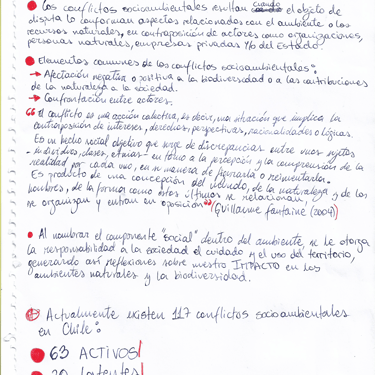 ● Los conflictos socioambientales resultan cuando el objeto de
disputa lo conforman aspectos relacionados con el ambiente o los
recursos naturales, en contraposición de actores como organizaciones,
personas naturales, empresas privadas y/o del Estado.
● Elementos comunes de los conflictos socioambientales":
→ Afectación negativa o positiva a la biodiversidad o a las contribuciones
de la naturaleza a la sociedad.
→ Confrontación entre actores.
"El conflicto es una acción colectiva, es decir, una situación que implica la
contraposición de intereses, derechos, perspectivas, racionalidades o lógicas.
Es un hecho social objetivo que surge de discrepancias entre unos sujetos
- individuos, clases, etnias - en torno a la percepción y la comprensión de la
realidad por cada uno, en su manera de figurarla o reinventarla.
Es producto de una concepción del mundo, de la naturaleza y de los
hombres, de la forma como éstos últimos se relacionan,
se organizan y entran en oposición" (Guillaume Fontaine (2004))
● Al nombrar el componente "social" dentro del ambiente, se le otorga
la responsabilidad a la sociedad el cuidado y el uso del territorio,
generando así reflexiones sobre nuestro IMPACTO en los
ambientes naturales y la biodiversidad.
Actualmente existen 117 conflictos socioambientales
en Chile:
● 63 ACTIVOS
Latentes